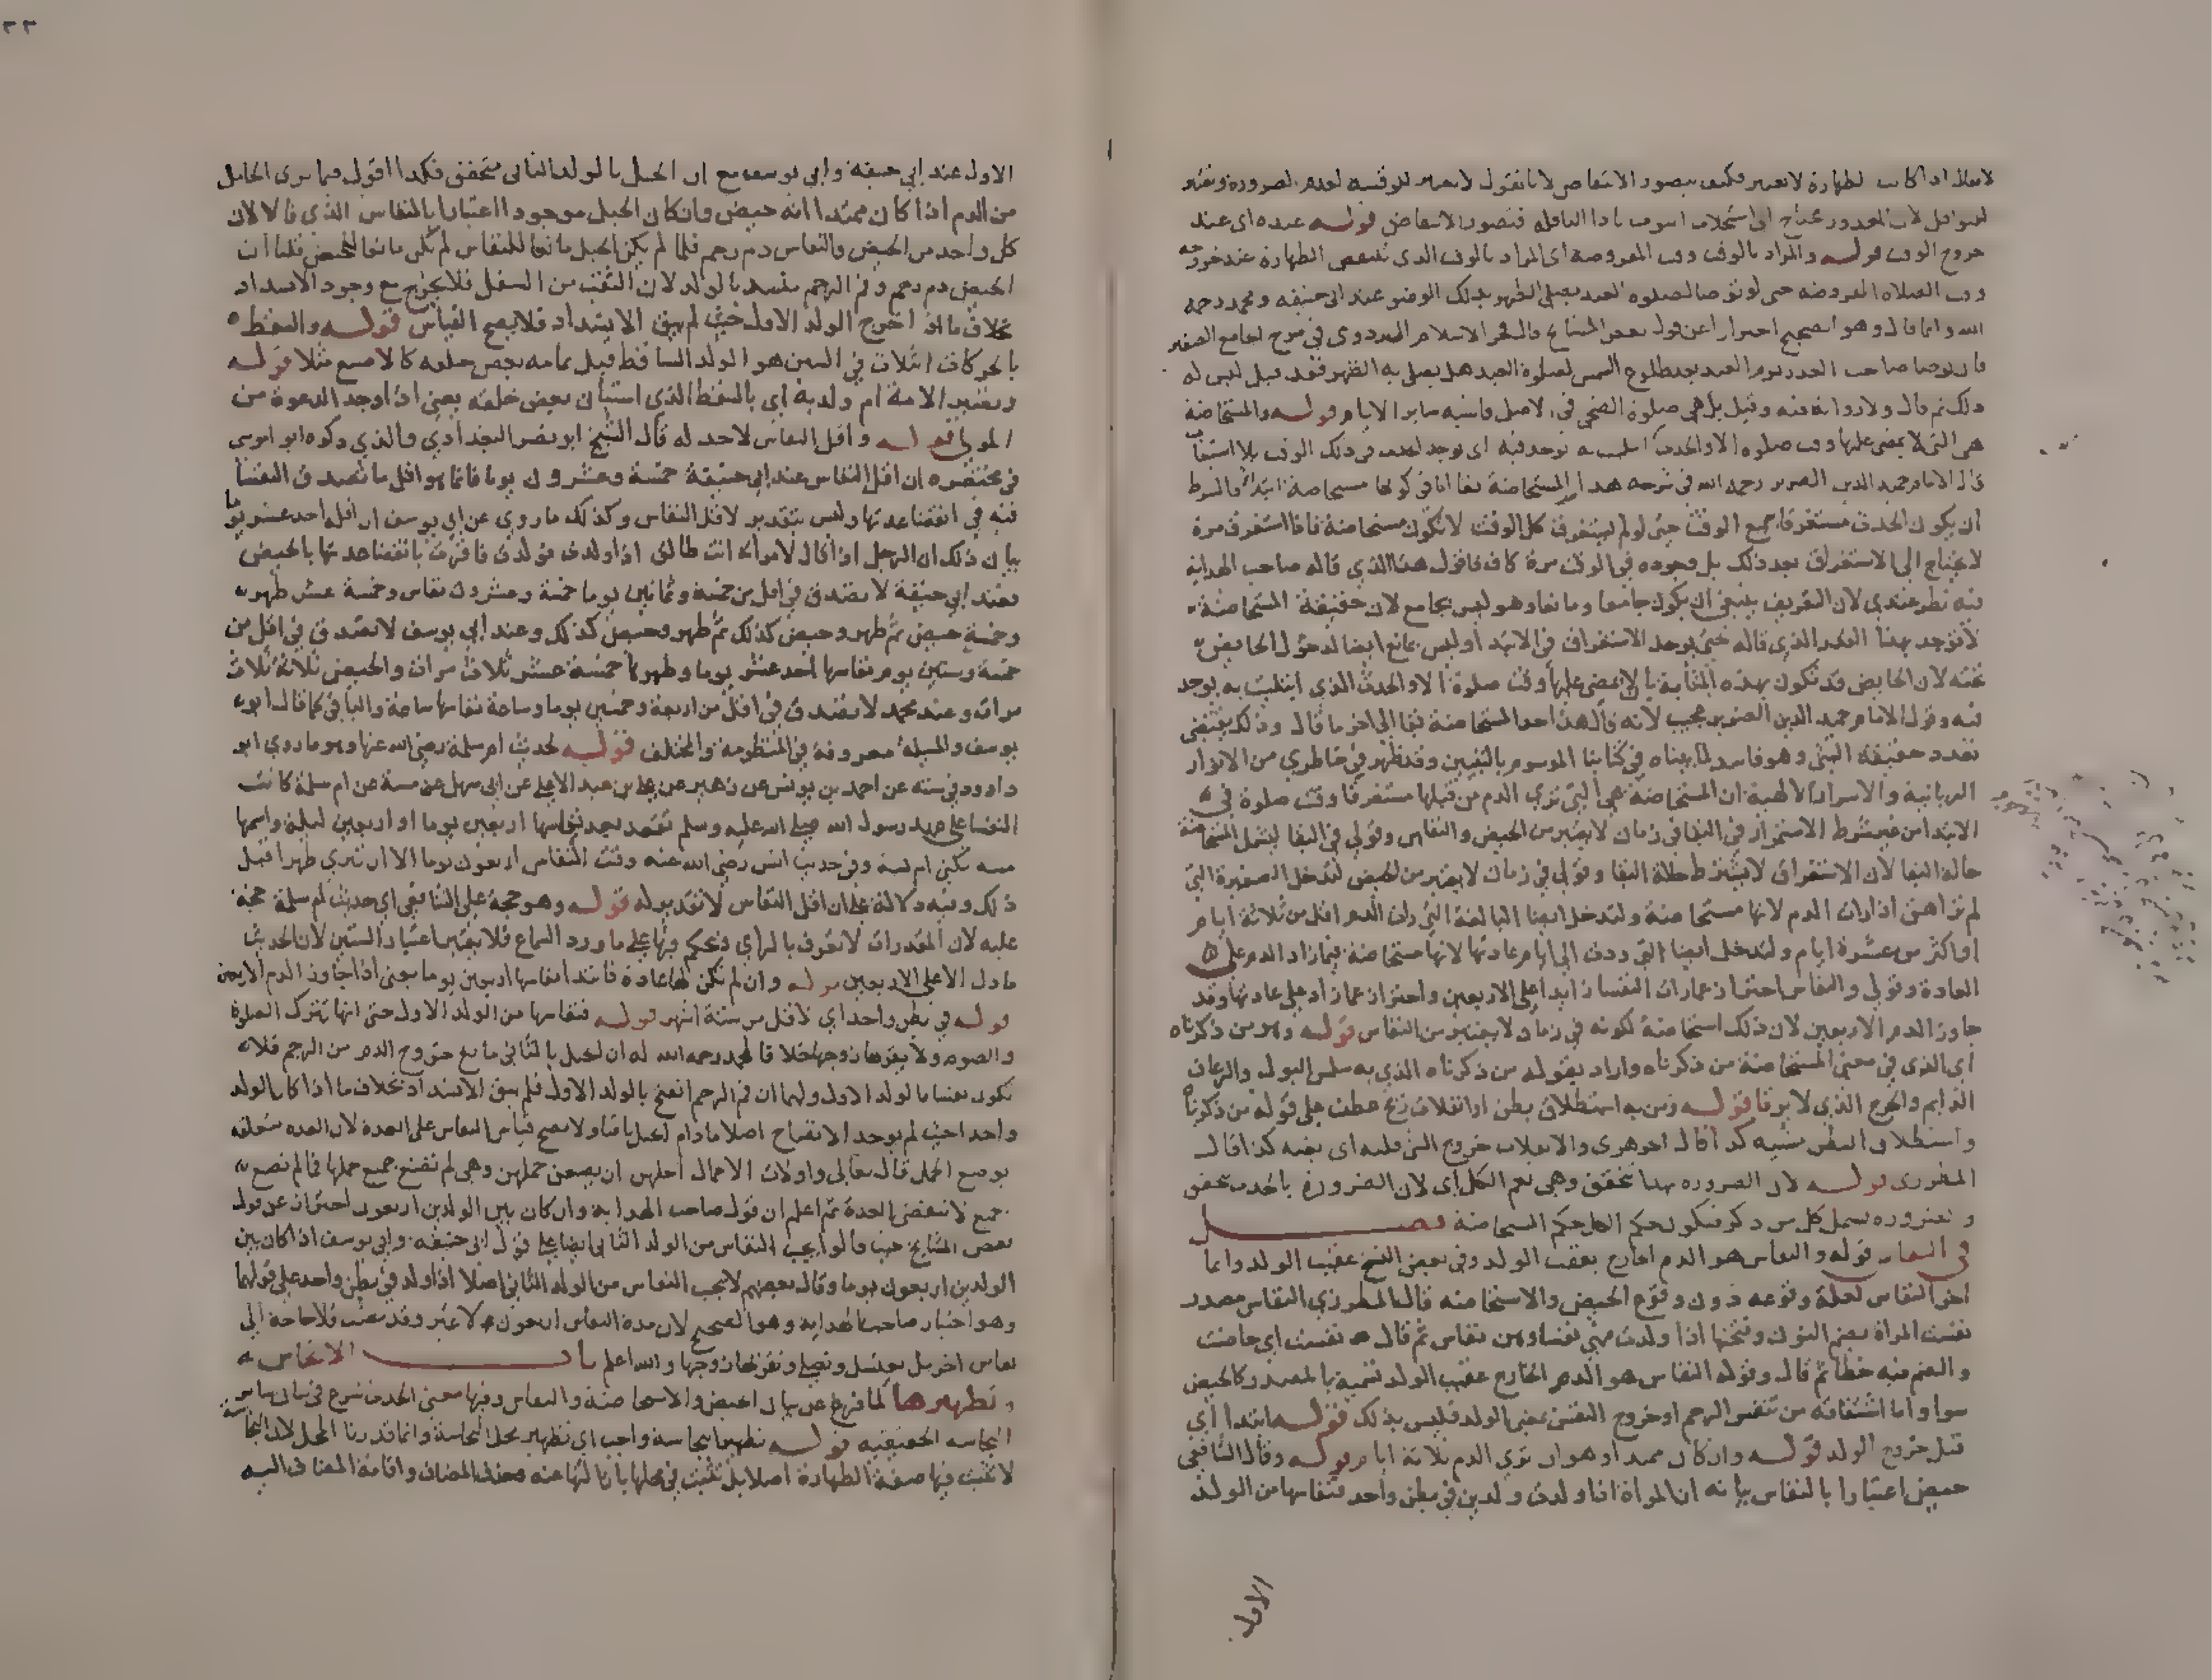 لا يقال اذا كانت الطهارة لا تعتبر فكيف يتصور الانتقاض لانا نقول لا تعتبر للوقتية لعدم الضرورة وتعتبر
للنوافل لان المعذور محتاج الى استخلاف اسوف باداء النافلة فتصور الانتقاض قوله عنده اى عند
خروج الوقت قوله والمراد بالوقت وقت المفروضة اى المراد بالوقت الذى تنتقض الطهارة عند خروجه
وقت الصلاة المفروضة حتى لو توضا لصلوة العيد يصلى الظهر بذلك الوضو عند ابى حنيفة ومحمد رحمه
الله وانما قال وهو الصحيح احترازا عن قول بعض المشايخ قال فخر الاسلام البزدوى فى شرح الجامع الصغير
فان توضا صاحب العذر يوم العيد بعد طلوع الشمس لصلوة العيد هل يصلى به الظهر فقد قيل ليس له
ذلك ثم قال ولا رواية فيه وقيل بل هى صلوة الضحى فى الاصل فاشبه سائر الايام قوله والمستحاضة
هى التى لا يمضى عليها وقت صلوة الا والحدث الذى ابتليت به يوجد فيه اى يوجد الحدث فى ذلك الوقت بلا استيعاب
قال الامام حميد الدين الضرير رحمه الله فى شرحه هذا حد المستحاضة بقا اما فى كونها مستحاضة ابتداء فالشرط
ان يكون الحدث مستغرقا جميع الوقت حتى لو لم يستغرق كل الوقت لا تكون مستحاضة فاذا استغرق مرة
لا يحتاج الى الاستغراق بعد ذلك بل وجوده فى الوقت مرة كاف فاقول هذا الذى قاله صاحب الهداية
فيه نظر عندى لان التعريف ينبغى ان يكون جامعا ومانعا وهو ليس بجامع لان حقيقة المستحاضة
لا توجد بهذا القدر الذى قاله حتى يوجد الاستغراق فى الابتداء وليس بمانع ايضا لدخول الحايض
تحته لان الحايض قد تكون بهذه المثابة بان لا يمضى عليها وقت صلوة الا والحدث الذى ابتليت به يوجد
فيه وقول الامام حميد الدين الضرير عجيب لانه قال هذا حد المستحاضة بقا الى اخر ما قال وذلك يقتضى
تعدد حقيقة الشى وهو فاسد لما بيناه فى كتابنا الموسوم بالتبيين وقد ظهر فى خاطرى من الانوار
الربانية والاسرار الالهية ان المستحاضة هى التى ترى الدم من قبلها مستغرقا وقت صلوة فى
الابتدا من غير شرط الاستمرار فى البقا فى زمان لا يعتبر من الحيض والنفاس وقولى فى البقا ليشمل المستحاضة
حالة البقا لان الاستغراق لا يشترط حالة البقا وقولى فى زمان لا يعتبر من الحيض لتدخل الصغيرة التى
لم تراهق اذا رات الدم لانها مستحاضة ولتدخل ايضا البالغة التى رات الدم اقل من ثلاثة ايام
او اكثر من عشرة ايام ولتدخل ايضا التى ردت الى ايام عادتها لانها مستحاضة فيما زاد الدم على
العادة وقولى والنفاس احتراز عما رات النفسا زايدا على الاربعين واحتراز عما زاد على عادتها وقد
جاوز الدم الاربعين لان ذلك استحاضة لكونه فى زمان لا يعتبر من النفاس قوله ومن ذكرناه
اى الذى فى معنى المستحاضة من ذكرناه واراد بقوله من ذكرناه الذى به سلس البول والرعاف
الدايم والجرح الذى لا يرقا قوله ومن به استطلاق بطن او انفلات ريح عطف على قوله من ذكرناه
واستطلاق البطن مشيه كذا قال الجوهرى والانفلات خروج الشى فلتة اى بغتة كذا قال
المطرزى قوله لان الضرورة بهذا تتحقق وهى تعم الكل اى لان الضرورة بالحدث تتحقق
والضرورة تشمل كل من ذكر فيكون حكم الكل حكم المستحاضة فصل
فى النفاس قوله والنفاس هو الدم الخارج بعقب الولد وفى بعض النسخ عقيب الولد وانما
اخر النفاس لقلة وقوعه دون وقوع الحيض والاستحاضة قال المطرزى النفاس مصدر
نفست المراة بضم النون وفتحها اذا ولدت فهى نفسا وهن نفاس ثم قال نفست اى حاضت
والضم فيه خطا ثم قال وقوله النفاس هو الدم الخارج عقيب الولد تسمية بالمصدر كالحيض
سوا واما اشتقاقه من تنفس الرحم او خروج النفس بمعنى الولد فليس بذلك قوله ابتدا اى
قبل خروج الولد قوله وان كان ممتدا وهو ان ترى الدم ثلاثة ايام قوله وقال الشافعى
حيض اعتبارا بالنفاس بيانه ان المراة اذا ولدت ولدين فى بطن واحد فنفاسها من الولد
الاول
٢٢
الاول عند ابى حنيفة وابى يوسف مع ان الحبل بالولد الثانى متحقق فكذا اقول فيما ترى الحامل
من الدم اذا كان ممتدا انه حيض وان كان الحبل موجودا اعتبارا بالنفاس الذى قالا لان
كل واحد من الحيض والنفاس دم رحم فلما لم يكن الحبل مانعا للنفاس لم يكن مانعا للحيض قلنا ان
الحيض دم رحم وفم الرحم ينسد بالولد لان الثقب من السفل فلا يخرج مع وجود الانسداد
بخلاف ما اذا خرج الولد الاول حيث لم يبق الانسداد فلا يصح القياس قوله والسقط
بالحركات الثلاث فى السين هو الولد الساقط قبل تمامه بعض خلقه كالاصبع مثلا قوله
وتصير الامة ام ولد به اى بالسقط الذى استبان بعض خلقه يعنى اذا وجد الدعوة من
المولى قوله واقل النفاس لا حد له قال الشيخ ابو نصر البغدادى والذى ذكره ابو موسى
فى مختصره ان اقل النفاس عند ابى حنيفة خمسة وعشرون يوما فانما هو اقل ما تصدق النفسا
فيه فى انقضا عدتها وليس بتقدير لاقل النفاس وكذلك ما روى عن ابى يوسف ان اقله احد عشر يوما
بيان ذلك ان الرجل اذا قال لامراته انت طالق اذا ولدت فولدت فاقرت بانقضا عدتها بالحيض
فعند ابى حنيفة لا تصدق فى اقل من خمسة وثمانين يوما خمسة وعشرون نفاس وخمسة عشر طهر
وخمسة حيض ثم طهر وحيض كذلك ثم طهر وحيض كذلك وعند ابى يوسف لا تصدق فى اقل من
خمسة وستين يوم نفاسها احد عشر يوما وطهرها خمسة عشر ثلاث مرات والحيض ثلاثة ثلاث
مرات وعند محمد لا تصدق فى اقل من اربعة وخمسين يوما وساعة نفاسها ساعة والباقى كما قال ابو
يوسف والمسيلة معروفة فى المنظومة والمختلف قوله لحديث ام سلمة رضى الله عنها وهو ما روى ابو
داوود فى سننه عن احمد بن يونس عن زهير عن على بن عبد الاعلى عن ابى سهل عن مسة عن ام سلمة كانت
النفسا على عهد رسول الله صلى الله عليه وسلم تقعد بعد نفاسها اربعين يوما او اربعين ليلة واسمها
مسه تكنى ام بسة وفى حديث انس رضى الله عنه وقت النفاس اربعون يوما الا ان ترى طهرا قبل
ذلك وفيه دلالة على ان اقل النفاس لا تقدير له قوله وهو حجة على الشافعى اى حديث ام سلمة حجة
عليه لان المقدرات لا تعرف بالراى فنحكم فيها على ما ورد السماع فلا يعتبر اعتبار الستين لان الحديث
ما دل الا على الاربعين قوله وان لم تكن لها عادة فابتدا نفاسها اربعين يوما يعنى اذا جاوز الدم الاربعين
قوله فى بطن واحد اى لاقل من ستة اشهر قوله فنفاسها من الولد الاول حتى انها تترك الصلوة
والصوم ولا يقربها زوجها خلافا لمحمد رحمه الله له ان الحبل بالثانى مانع خروج الدم من الرحم فلا
تكون نفسا بالولد الاول ولهما ان فم الرحم انفتح بالولد الاول فلم يبق الانسداد بخلاف ما اذا كان الولد
واحدا حيث لم يوجد الانفتاح اصلا ما دام الحبل باقيا ولا يصح قياس النفاس على العدة لان العدة متعلقة
بوضع الحمل قال تعالى واولات الاحمال اجلهن ان يضعن حملهن وهى لم تضع جميع حملها فما لم تضع
جميع لا تنقضى العدة ثم اعلم ان قول صاحب الهداية وان كان بين الولدين اربعون احتراز عن قول
بعض المشايخ حيث قالوا يجب النفاس من الولد الثانى ايضا على قول ابى حنيفة وابى يوسف اذا كان بين
الولدين اربعون يوما وقال بعضهم لا يجب النفاس من الولد الثانى اصلا اذا ولد فى بطن واحد على قولهما
وهو اختيار صاحب الهداية وهو الصحيح لان مدة النفاس اربعون لا غير وقد مضت فلا حاجة الى
نفاس اخر بل تغتسل وتصلى وتقربها زوجها والله اعلم باب الانجاس
وتطهيرها لما فرغ عن بيان الحيض والاستحاضة والنفاس وفيها معنى الحدث شرع فى بيان سائر
النجاسة الحقيقية قوله تطهير النجاسة واجب اى تطهير محل النجاسة وانما قدرنا المحل لان النجاسة
لا تثبت فيها صفة الطهارة اصلا بل تثبت فى محلها بازالتها عنه فحذف المضاف واقامة المضاف اليه